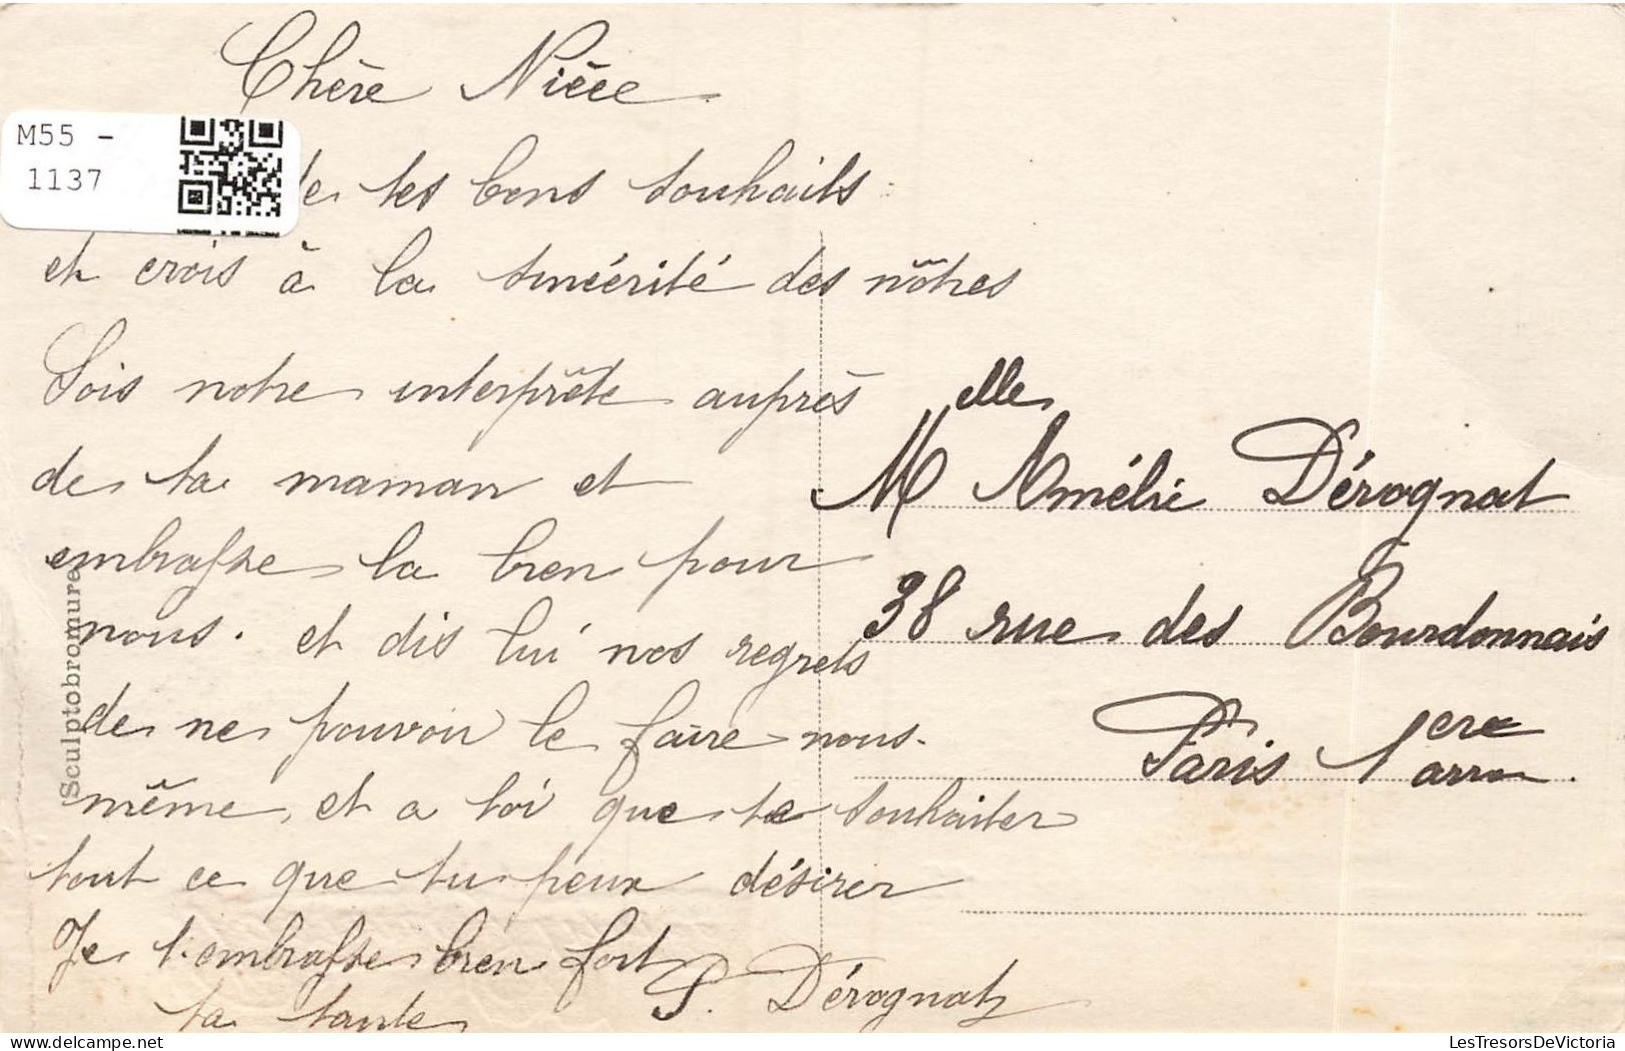 Chère Nièce
M55 -
1137
de tes bons souhaits
et crois à la sincérité des nôtres
Sois notre interprête auprès
de ta maman et
embrasse la bien pour
nous. et dis lui nos regrets
de ne pouvoir le faire nous-
même, et a toi que te souhaiter
tout ce que tu peux désirer
Je t'embrasse bien fort
ta tante
P. Dérognat
Melle Amélie Dérognat
38 rue des Bourdonnais
Paris 1ere arron.
Sculptobromure
LesTresorsDeVictoria